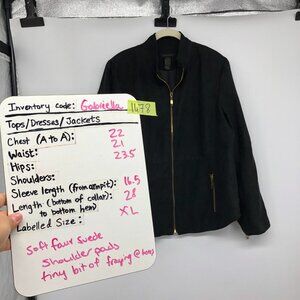 Inventory code: Gabriella 1478
Tops/Dresses/Jackets
Chest (A to A): 22
Waist: 21
Hips: 23.5
Shoulders:
Sleeve length (from armpit): 16.5
Length (bottom of collar 28
to bottom hem)
Labelled Size: XL
soft faux suede
shoulder pads
tiny bit of fraying @ hems